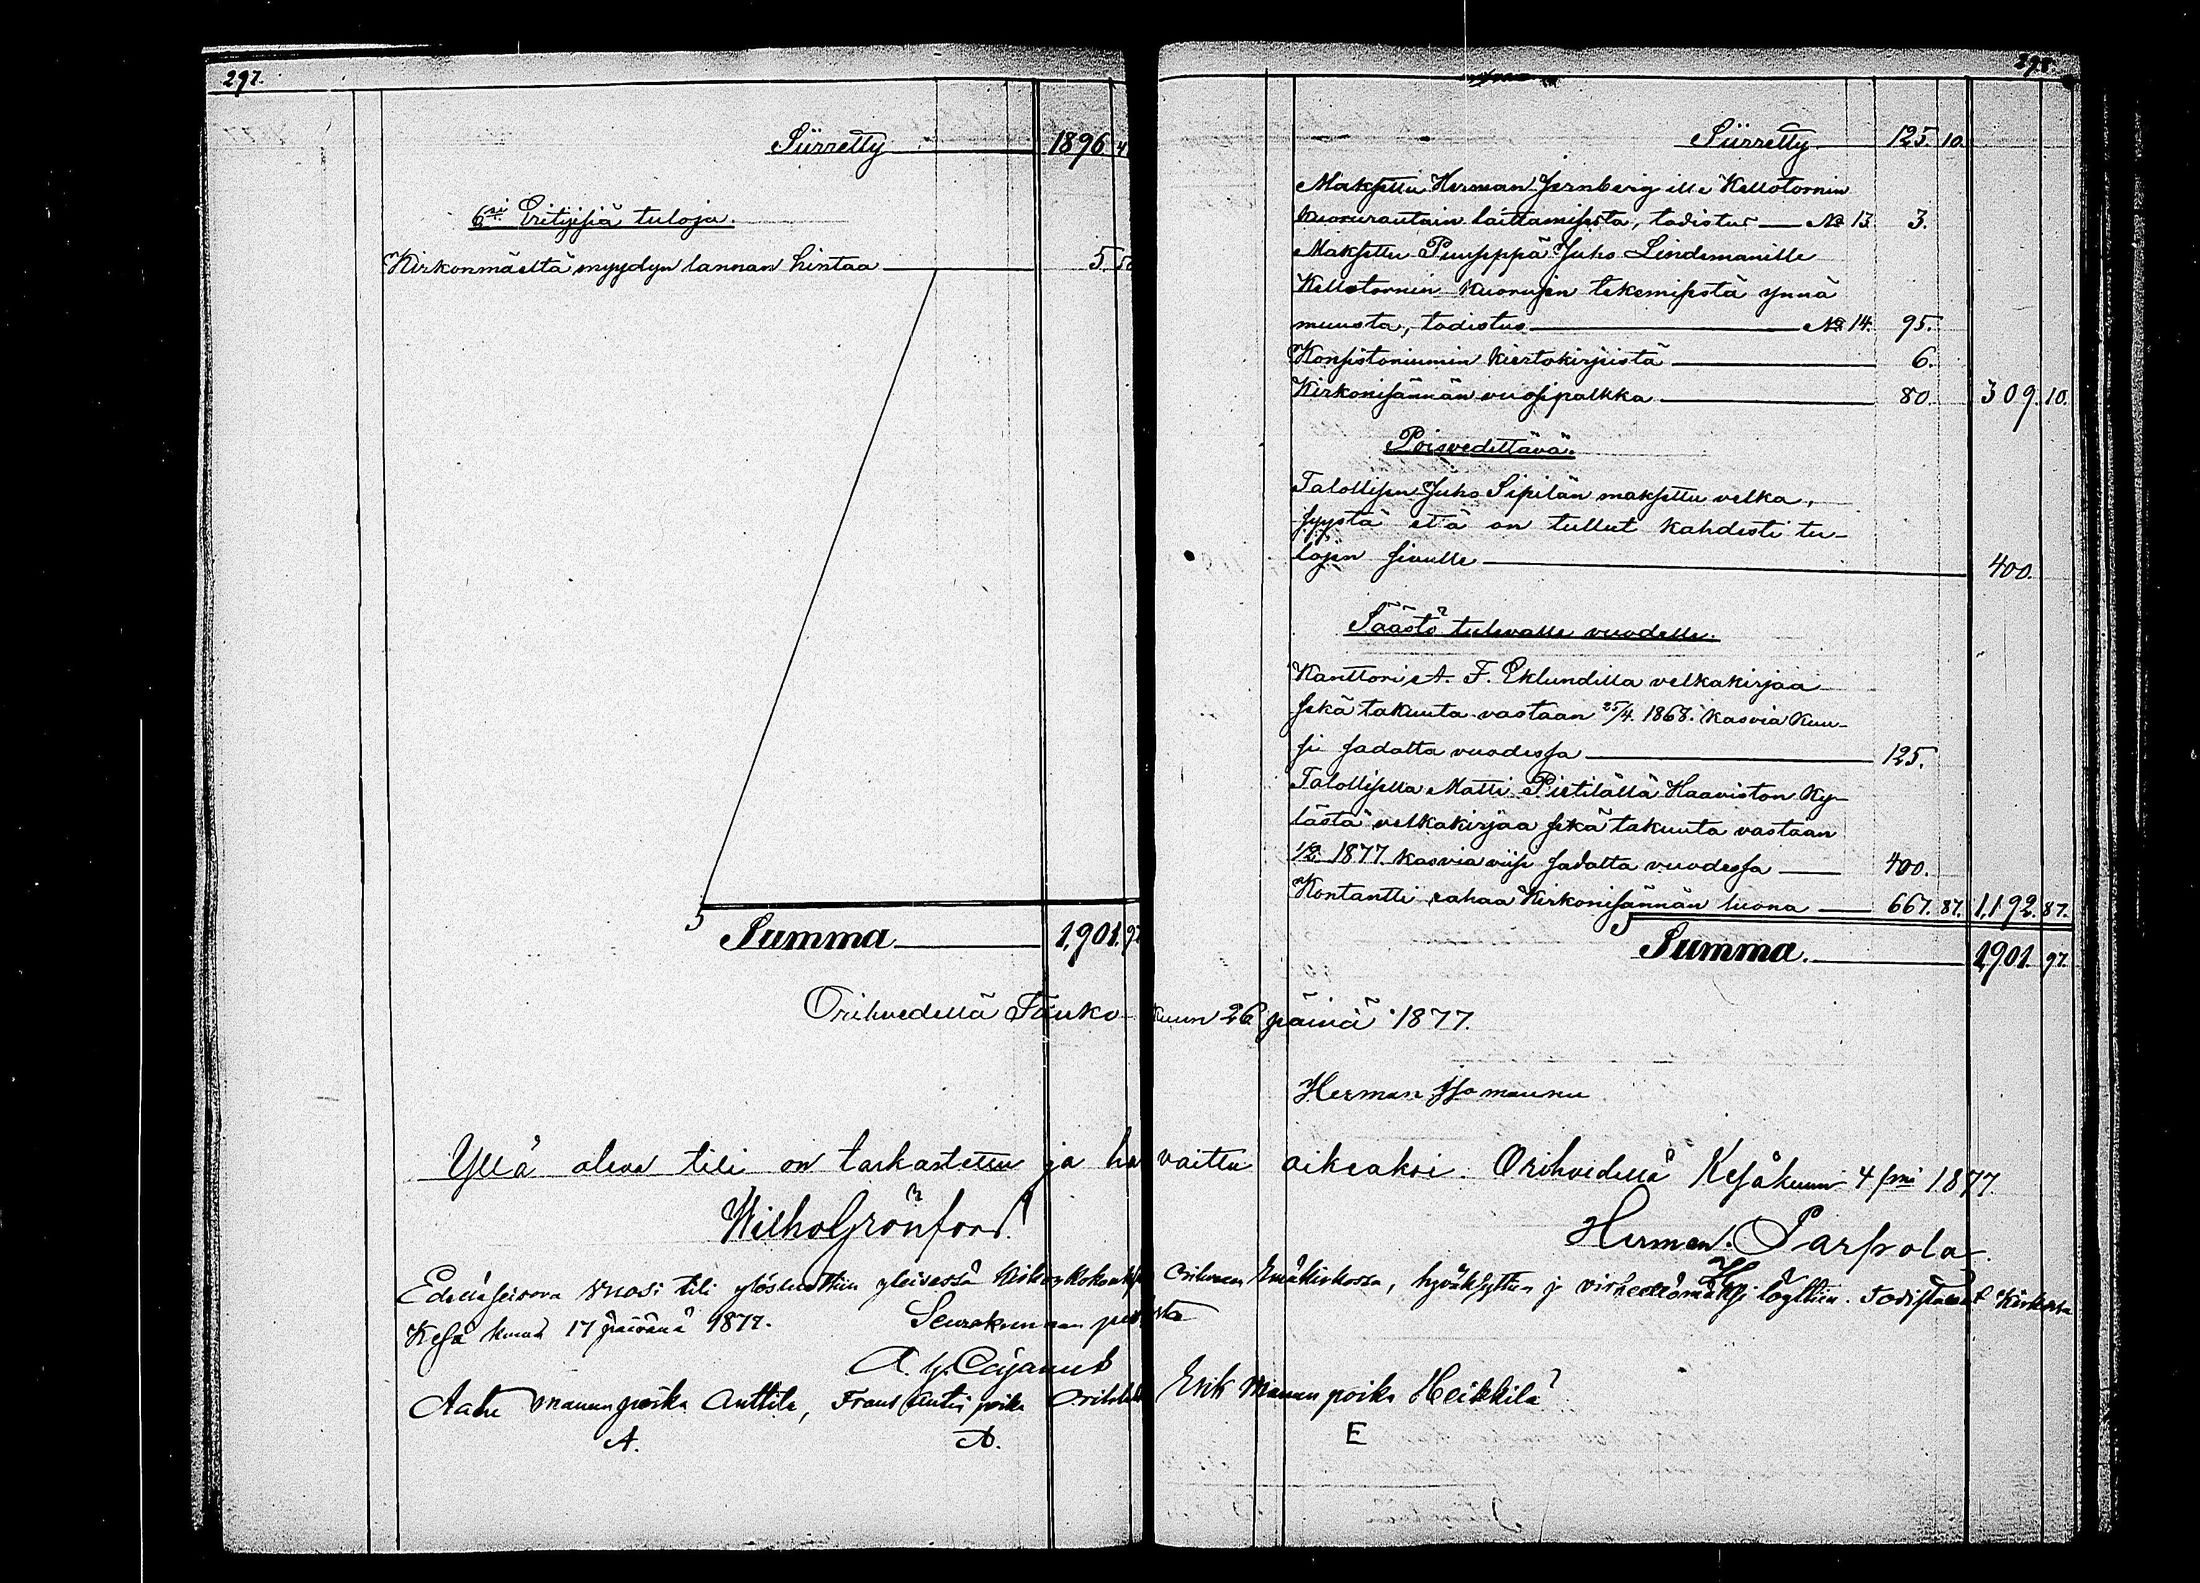 297.
Siirretty 1896 4
6ksi Erityisiä tuloja.
Kirkonmäeltä myydyn lannan hintaa 5 50
Summa 1,901. 97
298.
Siirretty 125. 10.
Maksettu Herman Jernberg ille Kellotornin
kuorurautain laittamisesta, todistus No 13 3.
Maksettu Puuseppä Juho Lindemanille
Kellotornin kuorujen tekemisestä ynnä
muusta, todistus No 14. 95.
Konsistoriumin kiertokirjeistä 6.
Kirkonisännän vuosipalkka 80. 309. 10.
Poisvedettävä.
Talollisen Juho Sipilän maksettu velka,
syystä että on tullut kahdesti tu-
lojen sivulle 400.
Säästö tulevalle vuodelle.
Kanttori A. F. Eklundilla velkakirjaa
sekä takuuta vastaan 25/4 1868. kasvia kuu-
si sadalta vuodessa 125.
Talollisella Matti Pietilällä Haaviston ky-
lästä velkakirjaa sekä takuuta vastaan
1/2 1877 kasvia viisi sadalta vuodessa 400.
Kontantti rahaa Kirkonisännän luona 667. 87. 1,192. 87.
Summa. 1901. 97.
Orihvedellä Touko kuun 26 päivä 1877.
Herman Iso maunu
Yllä oleva tili on tarkastettu ja ha vaittu oikeaksi. Orihvedellä Kesäkuun 4 pnä 1877.
Wilho Grönfors Herman Parpola
Edelläseisova vuosi tili ylösluettiin yleisessä Kirkonkokouksessa Oriheden Emäkirkossa, hyväksyttiin ja virheettömäksi löyttiin. Todistavat Kirkossa
Kesä kuun 17 päivänä 1877. Seurakunnan puolesta
A. G. Cajanus
Aatu Maunun poika Anttila, Frans Antin poika Erik Maunun poika Heikkilä
A. A. E